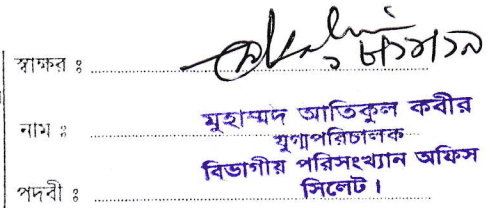 স্বাক্ষর ঃ
নাম ঃ মুহাম্মদ আতিকুল কবীর
যুগ্মপরিচালক
বিভাগীয় পরিসংখ্যান অফিস
পদবী ঃ সিলেট।